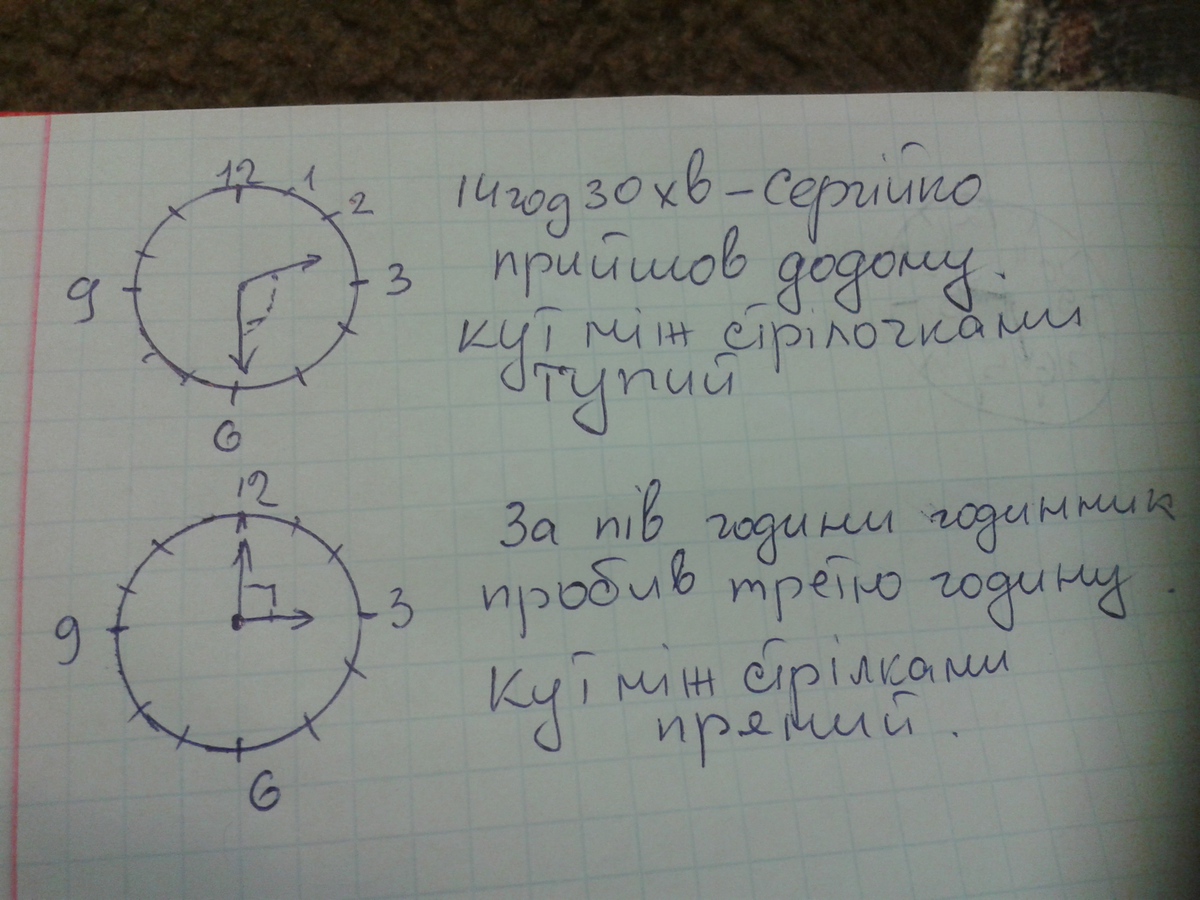 12
1
2
9
3
6
14 год 30 хв – Сергійко
прийшов додому.
кут між стрілочками
тупий
12
9
3
6
За пів години годинник
пробив третю годину.
Кут між стрілками
прямий.